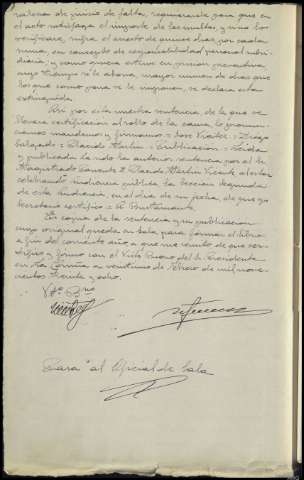 satoria de juicio de faltas, requiérasele para que en
el acto satisfaga el importe de las multas y si no los
verificare, sufra el arresto de quince días por cada
una, en concepto de responsabilidad personal subsi-
diaria, y como quiera estuvo en prisión preventiva
cuyo tiempo se le abona, mayor número de días que
los que como pena se le imponen, se declara esta
extinguida.
Así por esta nuestra sentencia, de la que se
llevará certificación al rollo de la causa, lo pronun-
ciamos mandamos y firmamos = José
= Publicación = Leída
y publicada ha sido la anterior sentencia por el Sr.
Magistrado Ponente D. Vicente al estar
celebrando audiencia pública la Sección Segunda
de esta Audiencia, en el día de su fecha, de que yo
Secretario certifico = A. Bustamante.
Es copia de la sentencia y su publicación
cuyo original queda en Sala para formar el libro
a fin del corriente año, a que me remito de que cer-
tifico y firmo con el Visto Bueno del Sr. Presidente
en La Coruña a veintiuno de Febrero de mil nove-
cientos treinta y ocho.
Vº Bno
Pasa al Oficial de Sala